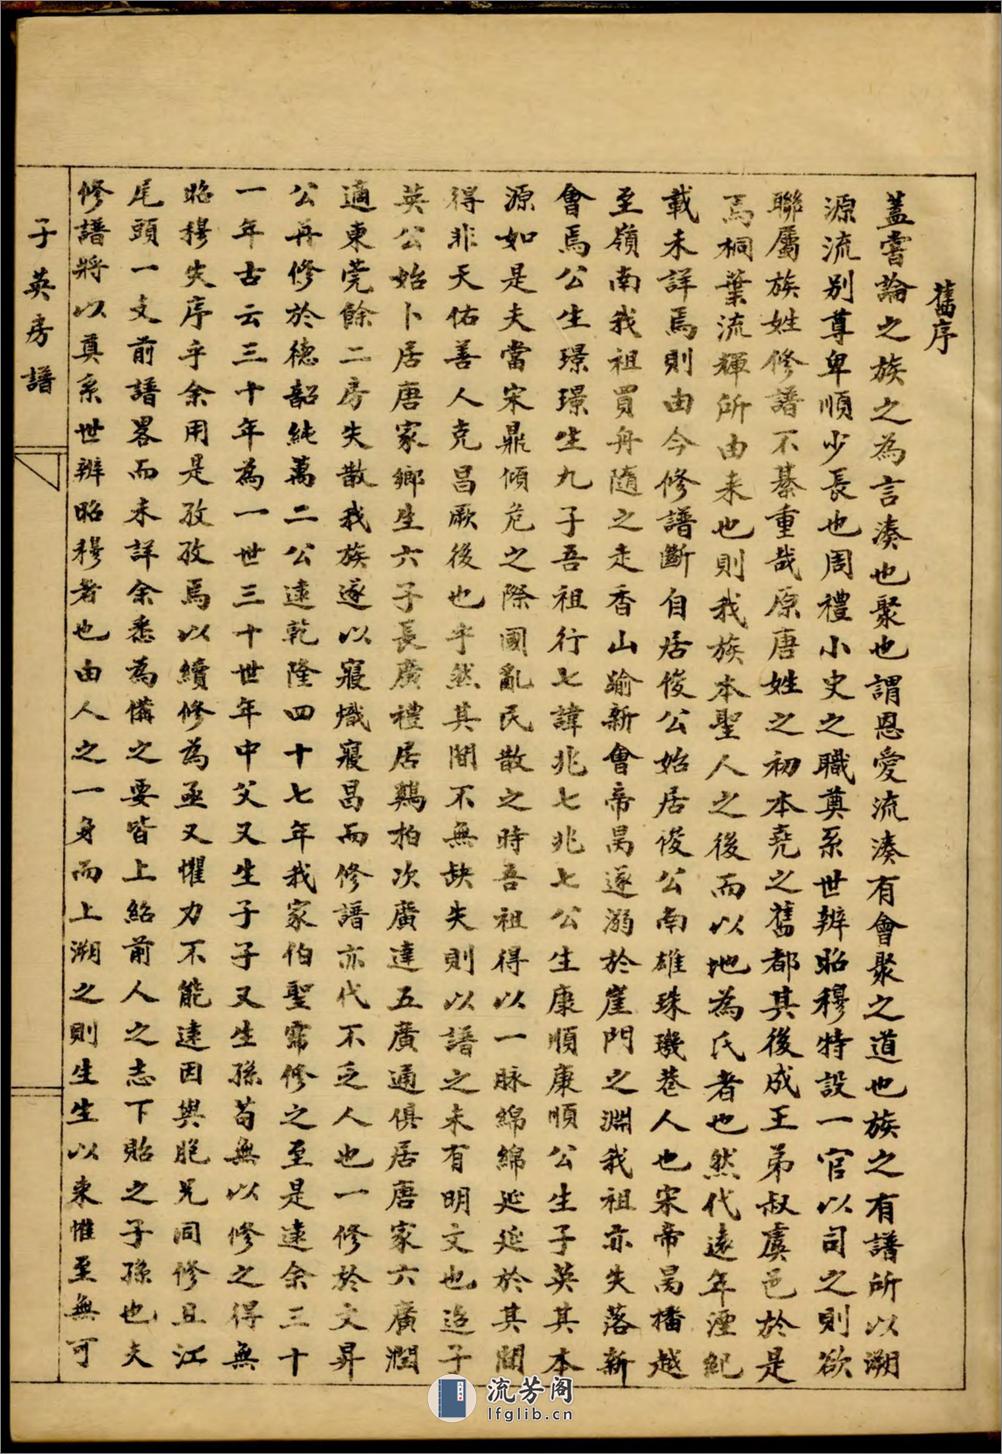 舊序
蓋嘗論之族之為言湊也聚也謂恩愛流湊有會聚之道也族之有譜所以溯
源流別尊卑順少長也周禮小史之職奠系世辨昭穆特設一官以司之則欲
聯屬族姓修譜不綦重哉原唐姓之初本堯之舊都其後成王弟叔虞邑於是
焉桐葉流輝所由来也則我族本聖人之後而以地為氏者也然代遠年湮紀
載未詳焉則由今修譜斷自居俊公始居俊公南雄珠璣巷人也宋帝昺播越
至嶺南我祖買舟隨之走香山踰新會帝昺遂溺於崖門之淵我祖亦失落新
會焉公生璟璟生九子吾祖行七諱兆七兆七公生康順康順公生子英其本
源如是夫當宋鼎傾危之際國亂民散之時吾祖得以一脉綿綿延延於其間
得非天佑善人克昌厥後也乎然其間不無缺失則以譜之未有明文也迨子
英公始卜居唐家鄉生六子長廣禮居鷄拍次廣達五廣通俱居唐家六廣潤
適東莞餘二房失散我族遂以寢熾寢昌而修譜亦代不乏人也一修於文昇
公再修於德韶純萬二公逮乾隆四十七年我家伯聖霈修之至是逮余三十
一年古云三十年為一世三十世年中父又生子子又生孫苟無以修之得無
昭穆失序乎余用是孜孜焉以續修為亟又懼力不能逮因與胞兄同修且江
尾頭一文前譜畧而未詳余悉為備之要皆上紹前人之志下貽之子孫也夫
修譜將以奠系世辨昭穆者也由人之一身而上溯之則生生以来惟至無可
子英房譜
流芳阁
lfglib.cn